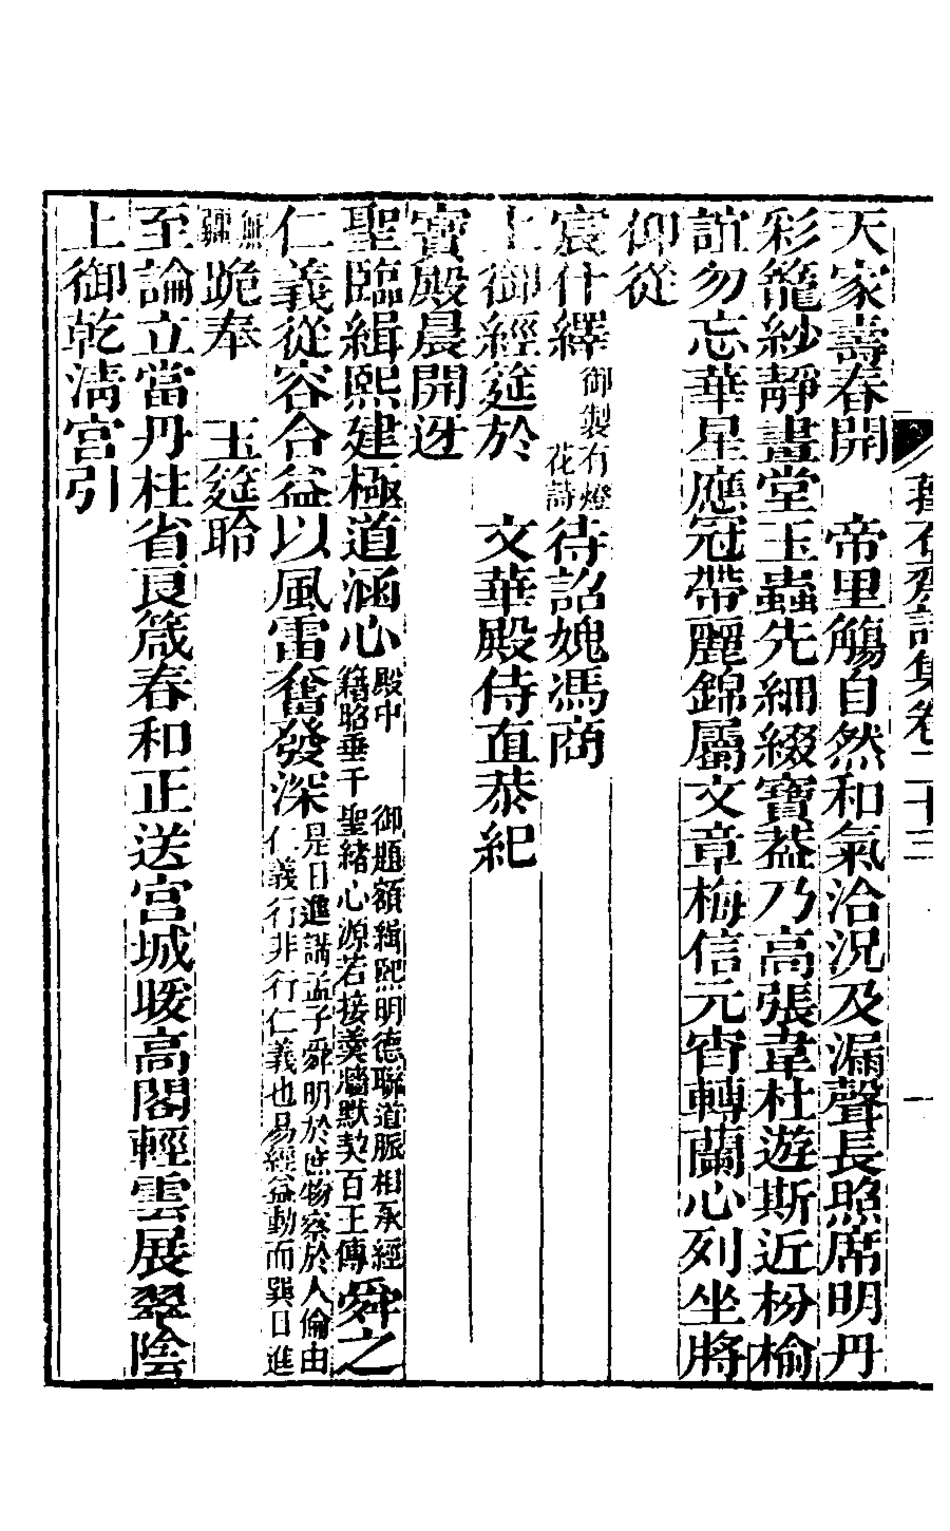 天家壽春開　帝里觴自然和氣洽況及漏聲長照席明丹
彩籠紗靜晝堂玉蟲先細綴寶葢乃高張韋杜遊斯近枌榆
誼勿忘華星應冠帶麗錦屬文章梅信元宵轉蘭心列坐將
仰從
宸什繹御製有燈花詩待詔媿馮商
上御經筵於　文華殿侍直恭紀
寶殿晨開迓
聖臨緝熙建極道涵心殿中　御題額緝熙明德聯道脈相承經籍昭垂千　聖緒心源若接羹牆默契百王傳舜之
仁義從容合益以風雷奮發深是日進講孟子舜明於庶物察於人倫由仁義行非行仁義也易經益動而巽日進
無疆跪奉　玉筵聆
至論立當丹柱省艮箴春和正送宮城暖高閣輕雲展翠陰
上御乾淸宮引
復初齋詩集卷二十三
一